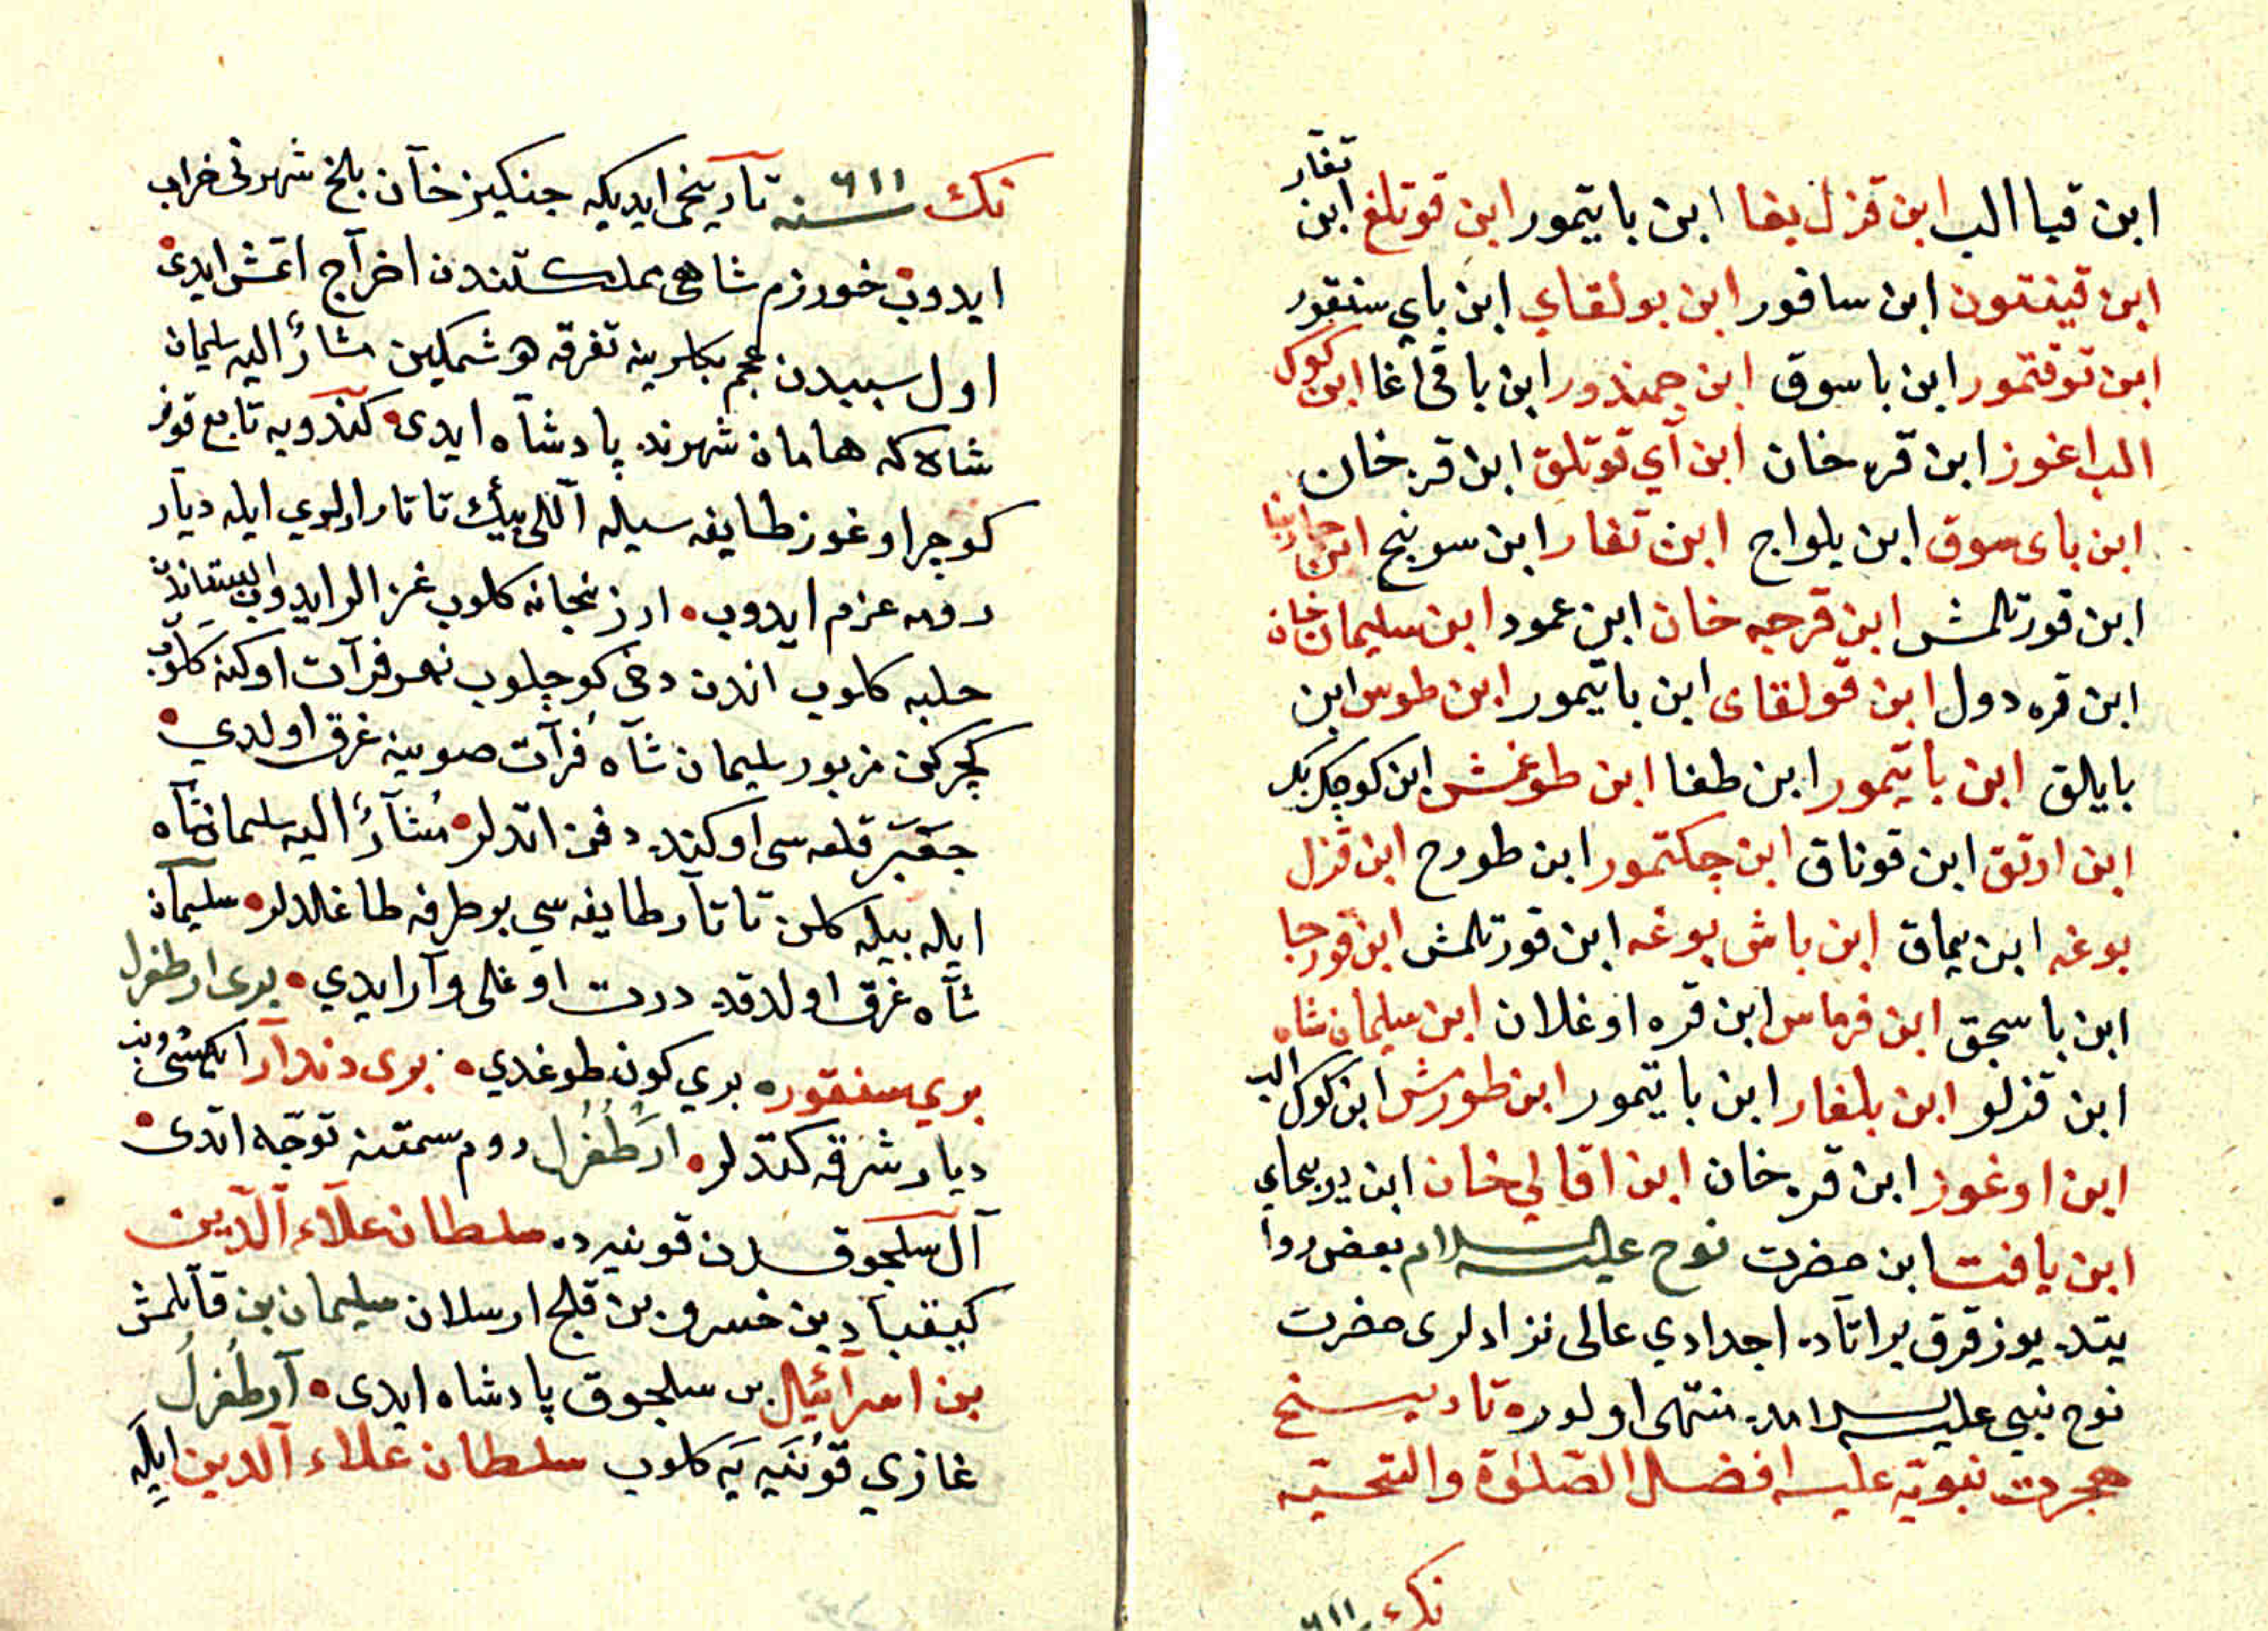 ابن قيا الب ابن قزل بغا ابن بايتمور ابن قوتلغ ابن تغار
ابن قينتون ابن ساقور ابن بولقاي ابن باي سنقور
ابن توقتمور ابن باسوق ابن جمندور ابن باقى اغا ابن كوك
الب اغوز ابن قره خان ابن آي قوتلق ابن قره خان
ابن باى سوق ابن يلواج ابن تغار ابن سوينج ابن
ابن قورتلمش ابن قرجه خان ابن عمود ابن سليمان خان
ابن قره دول ابن قولقاى ابن بايتمور ابن طوس ابن
بايالق ابن بايتمور ابن طغا ابن طوغمش ابن كوچك بك
ابن اورتق ابن قوناق ابن چكتمور ابن طورح ابن قزل
بوغه ابن يماق ابن باش بوغه ابن قورتلمش ابن قورجا
ابن باسجق ابن قرماس ابن قره اوغلان ابن سليمان شاه
ابن قزلو ابن بلغار ابن بايتمور ابن طورمش ابن كوك الب
ابن اوغوز ابن قره خان ابن اقالي خان ابن
ابن يافت ابن حضرت نوح عليه السلام بعض روا
يتده يوز قرق بر اتاده اجدادي عالى نژادلرى حضرت
نوح نبى عليه السلامه منتهى اولور تاريخ
هجرت نبويه عليه افضل الصلوة والتحيه
نك ٦١١
نك ٦١١ سنه تاريخى ايديكه جنكيز خان بلخ شهرنى خراب
ايدوب خورزم شاهى مملكتندن اخراج اتمش ايدى
اول سببدن عجم بكلرينه تفرقه دوشمكين مشار اليه سليمان
شاه كه هامان شهرنده پادشاه ايدى كندويه تابع قونر
كوچر اوغوز طايفه سيله اللى بيك تاتار اولري ايله ديار
رومه عزم ايدوب ارزنجانه كلوب غزالر ايدوب
حلبه كلوب اندن دخى كوچلوب نهر فرات اوكنه كلوب
كچركن مزبور سليمان شاه فرات صوينه غرق اولدي
جعبر قلعه سى اوكنده دفن اتدلر مشار اليه سليمان شاه
ايله بيله كلن تاتار طايفه سي بر طرفه طاغلدلر سليمان
شاه غرق اولدقده درت اوغلى وار ايدي برى ارطغرل
بري سنقور بري كون طوغدي برى دندار ايكيسى
ديار شرقه كتدلر ارطغرل روم سمتنه توجه اتدى
آل سلجوقدن قونيه ده سلطان علاء الدين
كيقباد بن خسرو بن قلج ارسلان سليمان بن قاتلمش
بن اسرائيل بن سلجوق پادشاه ايدى ارطغرل
غازي قونيه يه كلوب سلطان علاء الدين ايله